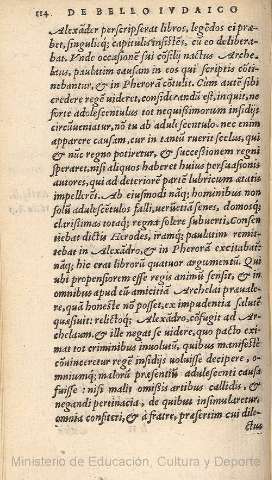 114 DE BELLO IVDAICO
Alexāder perscripserat libros, legēdos ei præ-
bet, singulisq; capitulis insistēs, cū eo delibera-
bat. Vnde occasionē sui cōsilij nactus Arche-
laus, paulatim causam in eos qui scriptis cōti-
nebantur, & in Pherorā cōtulit. Cum autē sibi
credere regē uideret, considerandū est, inquit, ne
forte adolescentulus tot nequissimorum insidijs
circūueniatur, nō tu ab adulescentulo. nec enim
apparere causam, cur in tantū ruerit scelus, qui
& nūc regno potiretur, & successionem regni
speraret, nisi aliquos haberet huius persuasionis
autores, qui ad deteriorē partē lubricum ætatis
impellerēt. Ab eiusmodi nāq; hominibus non
solū adulescētulos falli, uerūetiā senes, domosq;
clarissimas totaq; regna solere subuerti. Consen-
tiebat dictis Herodes, iramq; paulatim remit-
tebat in Alexādro, & in Pherorā excitabat:
nāq; hic erat librorū quatuor argumentū. Qui
ubi propensiorem esse regis animū sensit, & in
omnibus apud eū amicitiā Archelai præuale-
re, quā honestè nō posset, ex impudentia salutē
quæsiuit: relictoq; Alexādro, cōfugit ad Ar-
chelaum. & ille negat se uidere, quo pacto exi-
mat tot criminibus inuolutū, quibus manifestè
conuinceretur regē insidijs uoluisse decipere, o-
mniumq; malorū præsentiū adulescenti causa
fuisse: nisi malit omissis artibus callidis, &
negandi pertinacia, de quibus insimularetur,
omnia confiteri, & à fratre, præsertim cui dile-
ctus
Ministerio de Educación, Cultura y Deporte